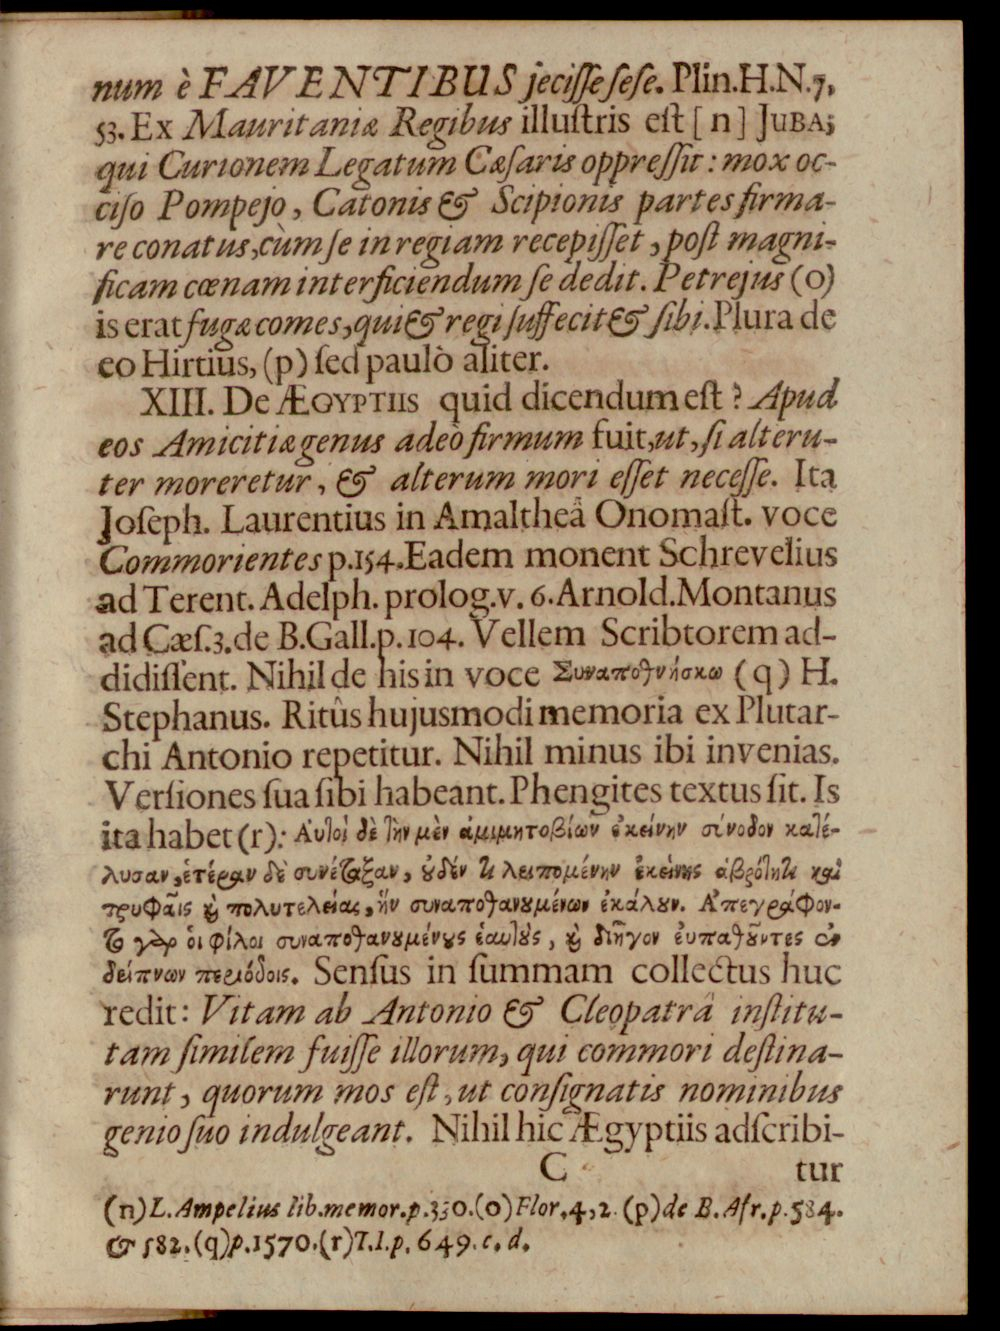 num è FAVENTIBUS jeciſſe ſeſe. Plin.H.N.7,
53. Ex Mauritaniæ Regibus illuſtris eſt [n] JUBA;
qui Curionem Legatum Cæſaris oppreſſit: mox oc-
ciſo Pompejo, Catonis & Scipionis partes firma-
re conatus, cùm ſe in regiam recepiſſet, poſt magni-
ficam cœnam interficiendum ſe dedit. Petrejus (o)
is erat fugæ comes, qui & regi ſuffecit & ſibi. Plura de
eo Hirtius, (p) ſed paulò aliter.
XIII. De ÆGYPTIIS quid dicendum eſt? Apud
eos Amicitiæ genus adeò firmum fuit, ut, ſi alteru-
ter moreretur, & alterum mori eſſet neceſſe. Ita
Joſeph. Laurentius in Amaltheâ Onomaſt. voce
Commorientes p.154. Eadem monent Schrevelius
ad Terent. Adelph. prolog. v. 6. Arnold. Montanus
ad Cæſ.3. de B. Gall. p. 104. Vellem Scribtorem ad-
didiſſent. Nihil de his in voce Συναποθνήσκω (q) H.
Stephanus. Ritûs hujusmodi memoria ex Plutar-
chi Antonio repetitur. Nihil minus ibi invenias.
Verſiones ſua ſibi habeant. Phengites textus ſit. Is
ita habet (r): Αυτοὶ δὲ τὴν μὲν ἀμιμητοβίων ἐκείνην σύνοδον κατέ-
λυσαν, ἑτέραν δὲ συνέταξαν, ουδέν τι λειπομένην ἐκείνης ἁβρότητι καὶ
τρυφαῖς καὶ πολυτελείας, ἣν συναποθανουμένων ἐκάλουν. Απεγράφον-
το γὰρ οἱ φίλοι συναποθανουμένους ἑαυτοὺς, καὶ διῆγον ἐυπαθοῦντες ἐν
δείπνων περιόδοις. Senſus in ſummam collectus huc
redit: Vitam ab Antonio & Cleopatrâ inſtitu-
tam ſimilem fuiſſe illorum, qui commori deſtina-
runt, quorum mos eſt, ut conſignatis nominibus
genio ſuo indulgeant. Nihil hic Ægyptiis adſcribi-
C tur
(n) L. Ampelius lib. memor. p.330. (o) Flor, 4, 2. (p) de B. Afr. p. 584.
& 582. (q) p. 1570. (r) T.I. p. 649. c. d.